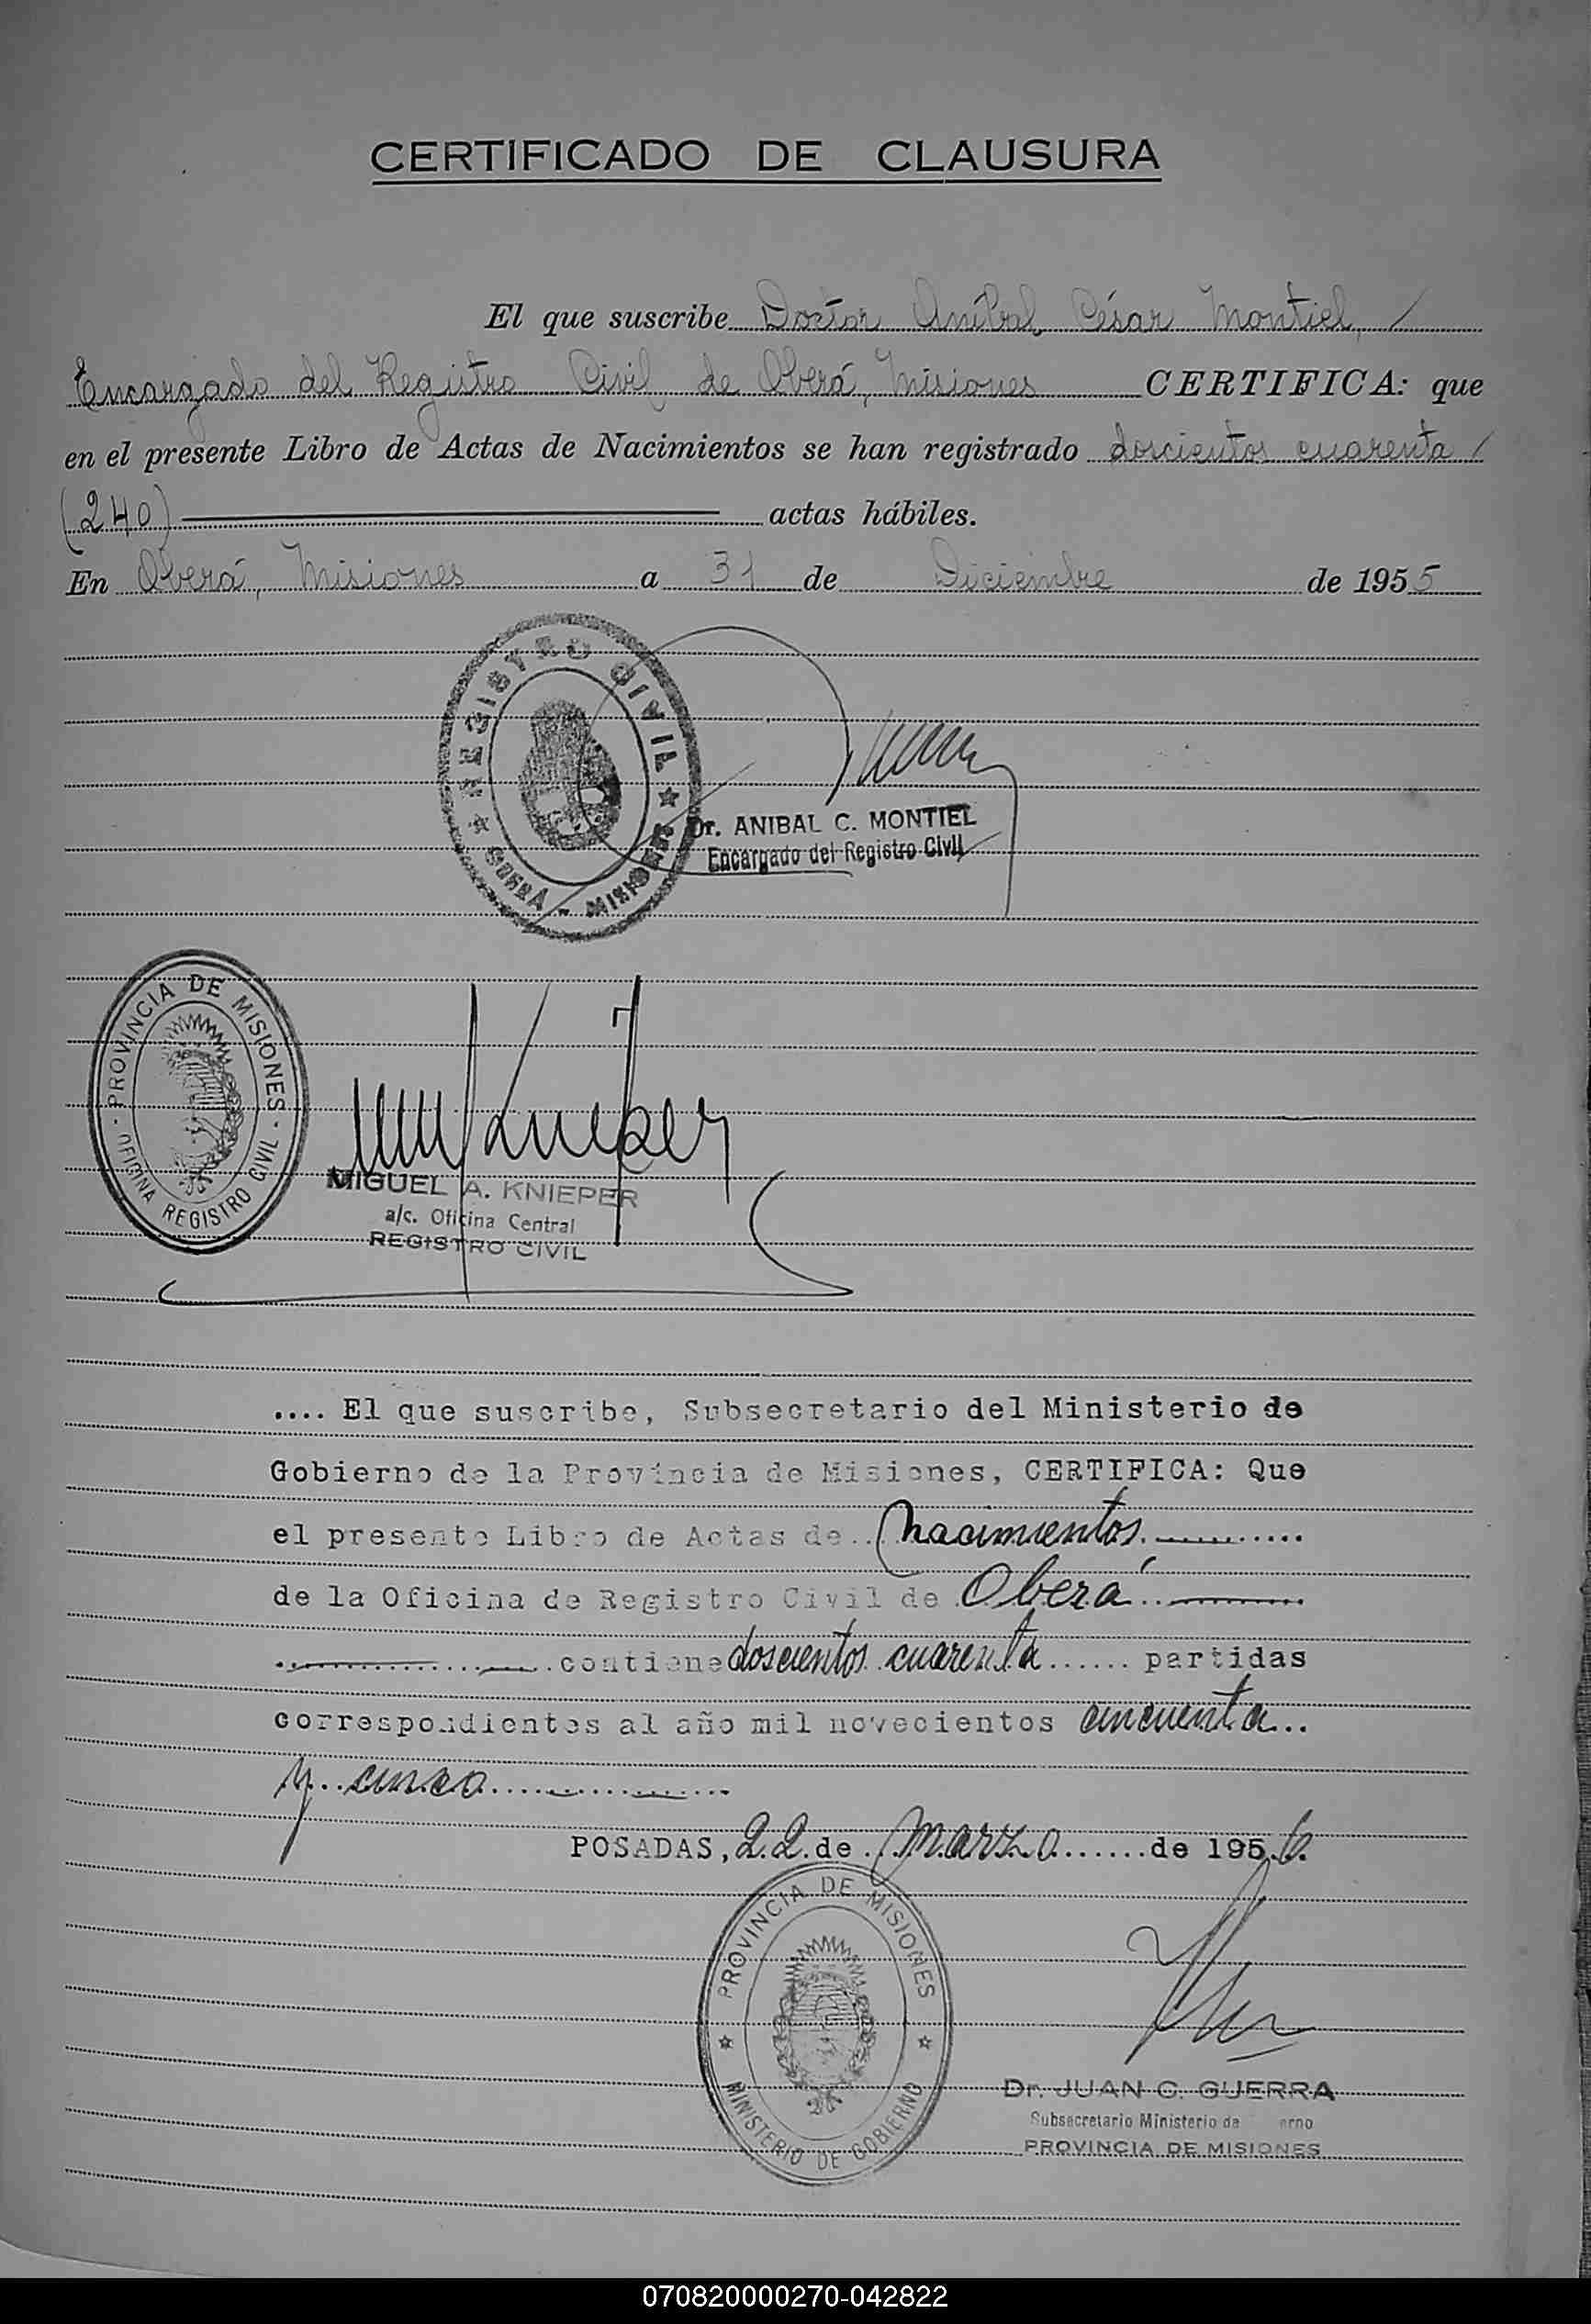 CERTIFICADO DE CLAUSURA
El que suscribe Doctor Aníbal César Montiel, /
Encargado del Registro Civil de Oberá, Misiones CERTIFICA: que
en el presente Libro de Actas de Nacimientos se han registrado doscientos cuarenta /
(240) actas hábiles.
En Oberá, Misiones a 31 de Diciembre de 1955
REGISTRO CIVIL
OBERA - MISIONES
Dr. ANIBAL C. MONTIEL
Encargado del Registro Civil
PROVINCIA DE MISIONES
OFICINA REGISTRO CIVIL
Knieper
MIGUEL A. KNIEPER
a/c. Oficina Central
REGISTRO CIVIL
.... El que suscribe, Subsecretario del Ministerio de
Gobierno de la Provincia de Misiones, CERTIFICA: Que
el presente Libro de Actas de Nacimientos
de la Oficina de Registro Civil de Oberá
contiene doscientos cuarenta ...... partidas
correspondientes al año mil novecientos cincuenta..
y cinco
POSADAS, 22 de Marzo ....... de 1956.
PROVINCIA DE MISIONES
MINISTERIO DE GOBIERNO
Dr. JUAN C. GUERRA
Subsecretario Ministerio de erno
PROVINCIA DE MISIONES
070820000270-042822